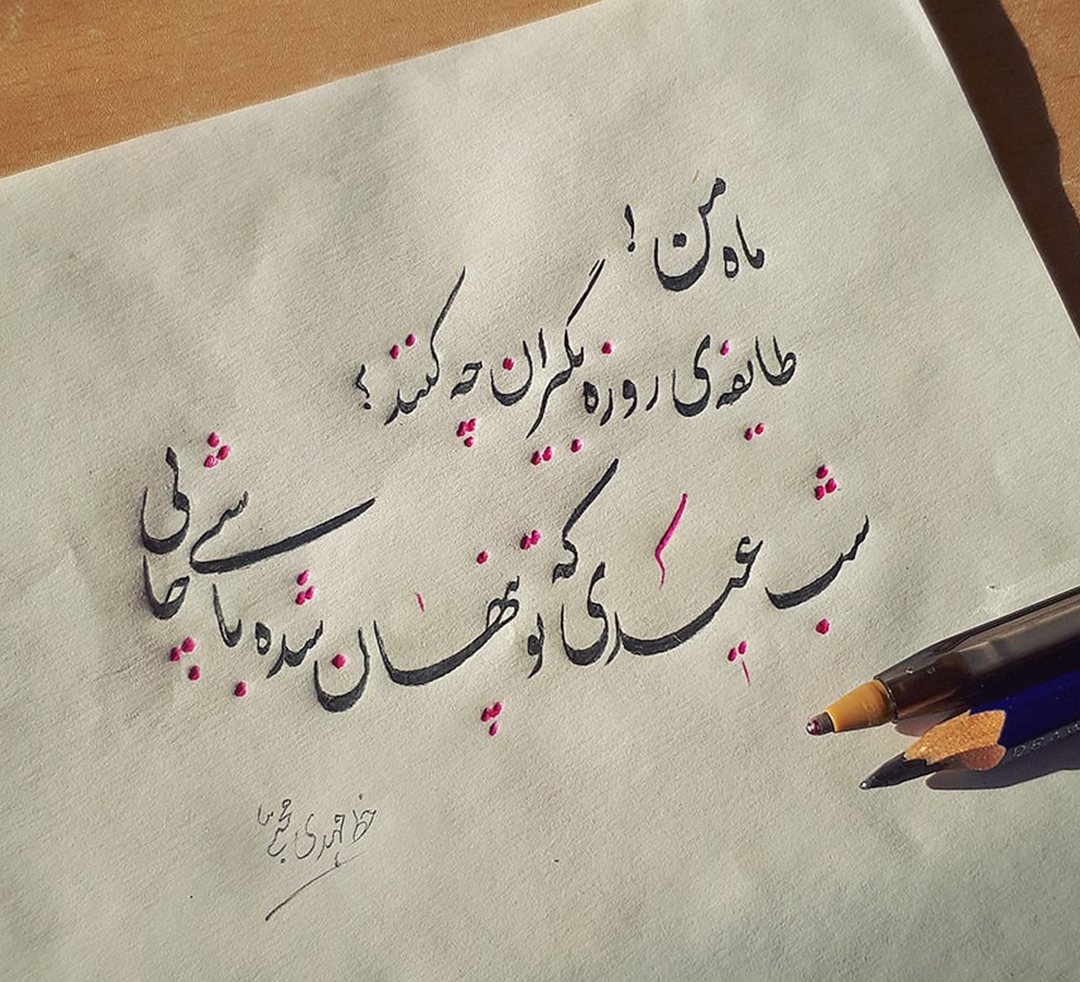 ماه من !
طایفه‌ی روزه بگیران چه کنند ؟
شب عیدی که تو پنهان شده باشی جایی
خط مهدی